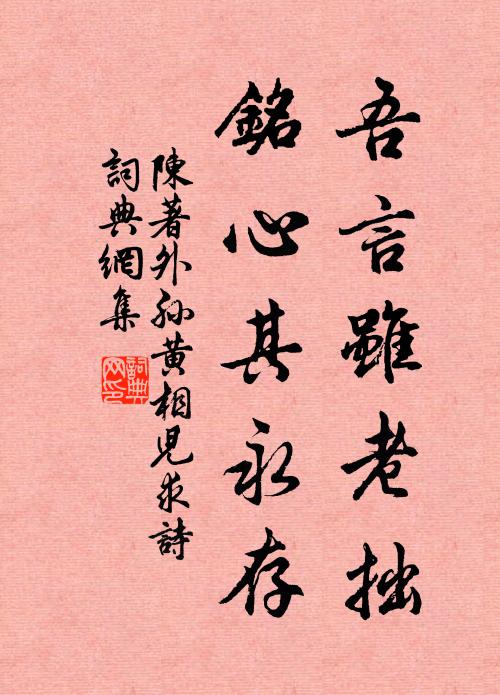 吾言雖老拙
銘心其永存
陳著外孫黄相兒求詩
詞典網集
詞典網印